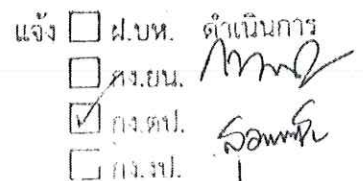 แจ้ง ☐ ฝ.บห. ดำเนินการ
☐ กง.ยน.
☑ กง.ตป.
☐ กง.งป.